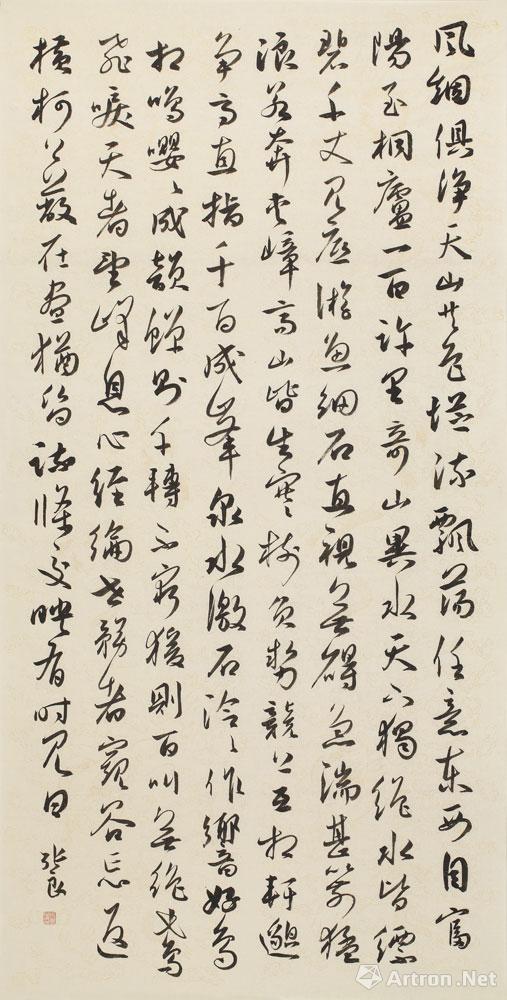 風烟俱淨天山共色從流飄蕩任意東西自富
陽至桐廬一百許里奇山異水天下獨絕水皆縹
碧千丈見底游魚細石直視無碍急湍甚箭猛
浪若奔夾嶂高山皆生寒樹負勢競上互相軒邈
爭高直指千百成峯泉水激石泠〻作響好鳥
相鳴嚶〻成韻蟬則千轉不窮猨則百叫無絕鳶
飛唳天者望峰息心經綸世務者窺谷忘返
橫柯上蔽在晝猶昏疎條交映有時見日 張良
Artron.Net